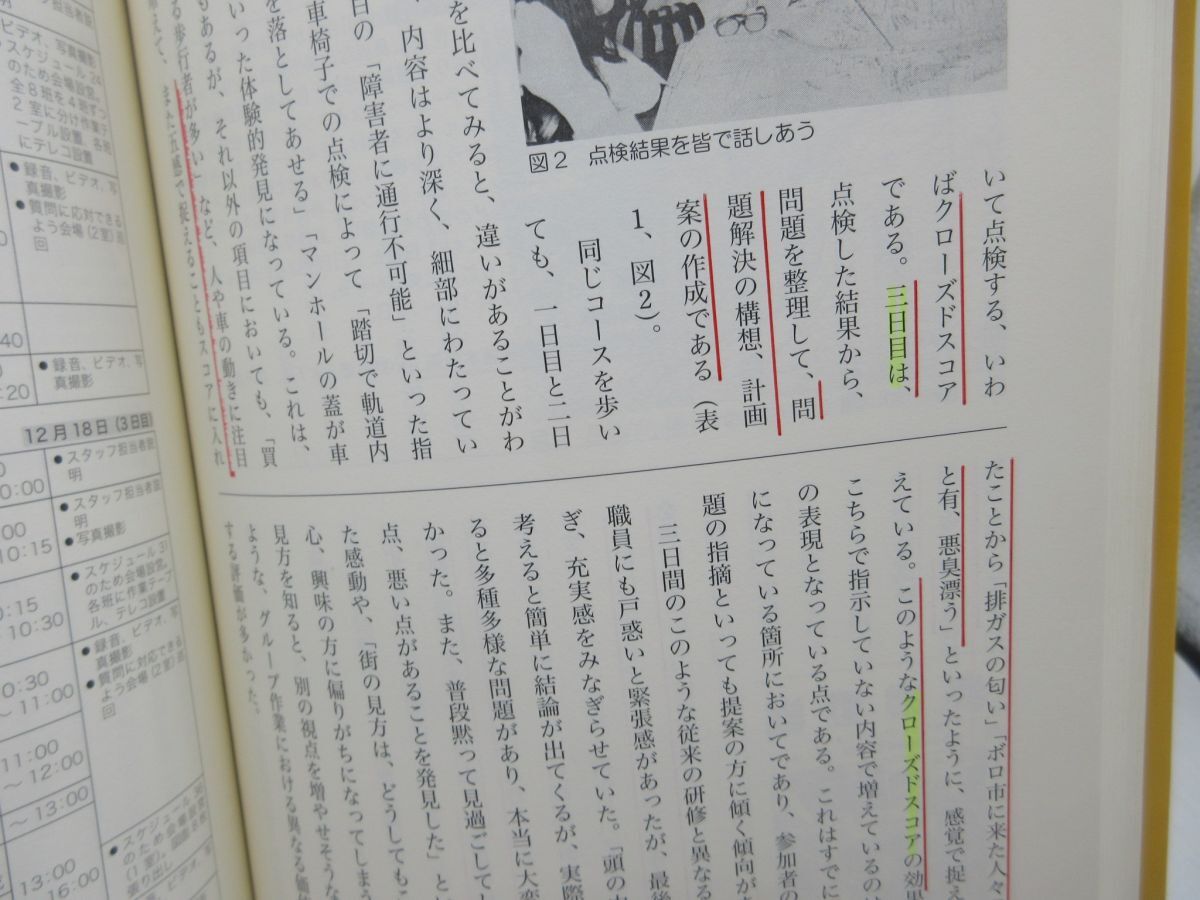 図2 点検結果を皆で話しあう
いて点検する、いわ
ばクローズドスコア
である。三日目は、
点検した結果から、
問題を整理して、問
題解決の構想、計画
案の作成である（表
1、図2）。
同じコースを歩い
ても、一日目と二日
を比べてみると、違いがあることがわ
、内容はより深く、細部にわたってい
日の「障害者に通行不可能」といった指
車椅子での点検によって「踏切で軌道内
を落としてあせる」「マンホールの蓋が車
いった体験的発見になっている。これは、
もあるが、それ以外の項目においても、「買
る歩行者が多い」など、人や車の動きに注目
また五感で捉えることもスコアに入れ
たことから「排ガスの匂い」「ボロ市に来た人々
と有、悪臭漂う」といったように、感覚で捉え
えている。このようなクローズドスコアの効果
こちらで指示していない内容で増えているの
の表現となっている点である。これはすでに
になっている箇所においてであり、参加者の
題の指摘といっても提案の方に傾く傾向が
三日間のこのような従来の研修と異なる
職員にも戸惑いと緊張感があったが、最後
ぎ、充実感をみなぎらせていた。「頭の
考えると簡単に結論が出てくるが、実際
ると多種多様な問題があり、本当に大変
かった。また、普段黙って見過ごして
点、悪い点があることを発見した」と
た感動や、「街の見方は、どうしてもこ
心、興味の方に偏りがちになってしまう
見方を知ると、別の視点を増やせそうな
ような、グループ作業における異なる価値
する評価が多かった。
明
ビデオ、写真撮影
スケジュール24
のため会場設営、
全8班を4班ずつ
2室に分け作業テ
ーブル設置、各班
にテレコ設置
●録音、ビデオ、写
真撮影
●質問に応対できる
よう会場（2室）巡
回
40
:20
●録音、ビデオ、写
真撮影
12月18日（3日目）
0:00
●スタッフ担当者説
明
:00
10:15
●スタッフ担当者説
明
●写真撮影
0:15
10:30
●スケジュール31
のため会場設営、
各班に作業テーブ
ル、テレコ設置
0:30
～11:00
●録音、ビデオ、写
真撮影
●質問に応対できる
よう会場（2室）巡
回
11:00
～12:00
～13:00
13:00
16:00
●スケジュール36
のため会場設営
（1室）、
張り出し